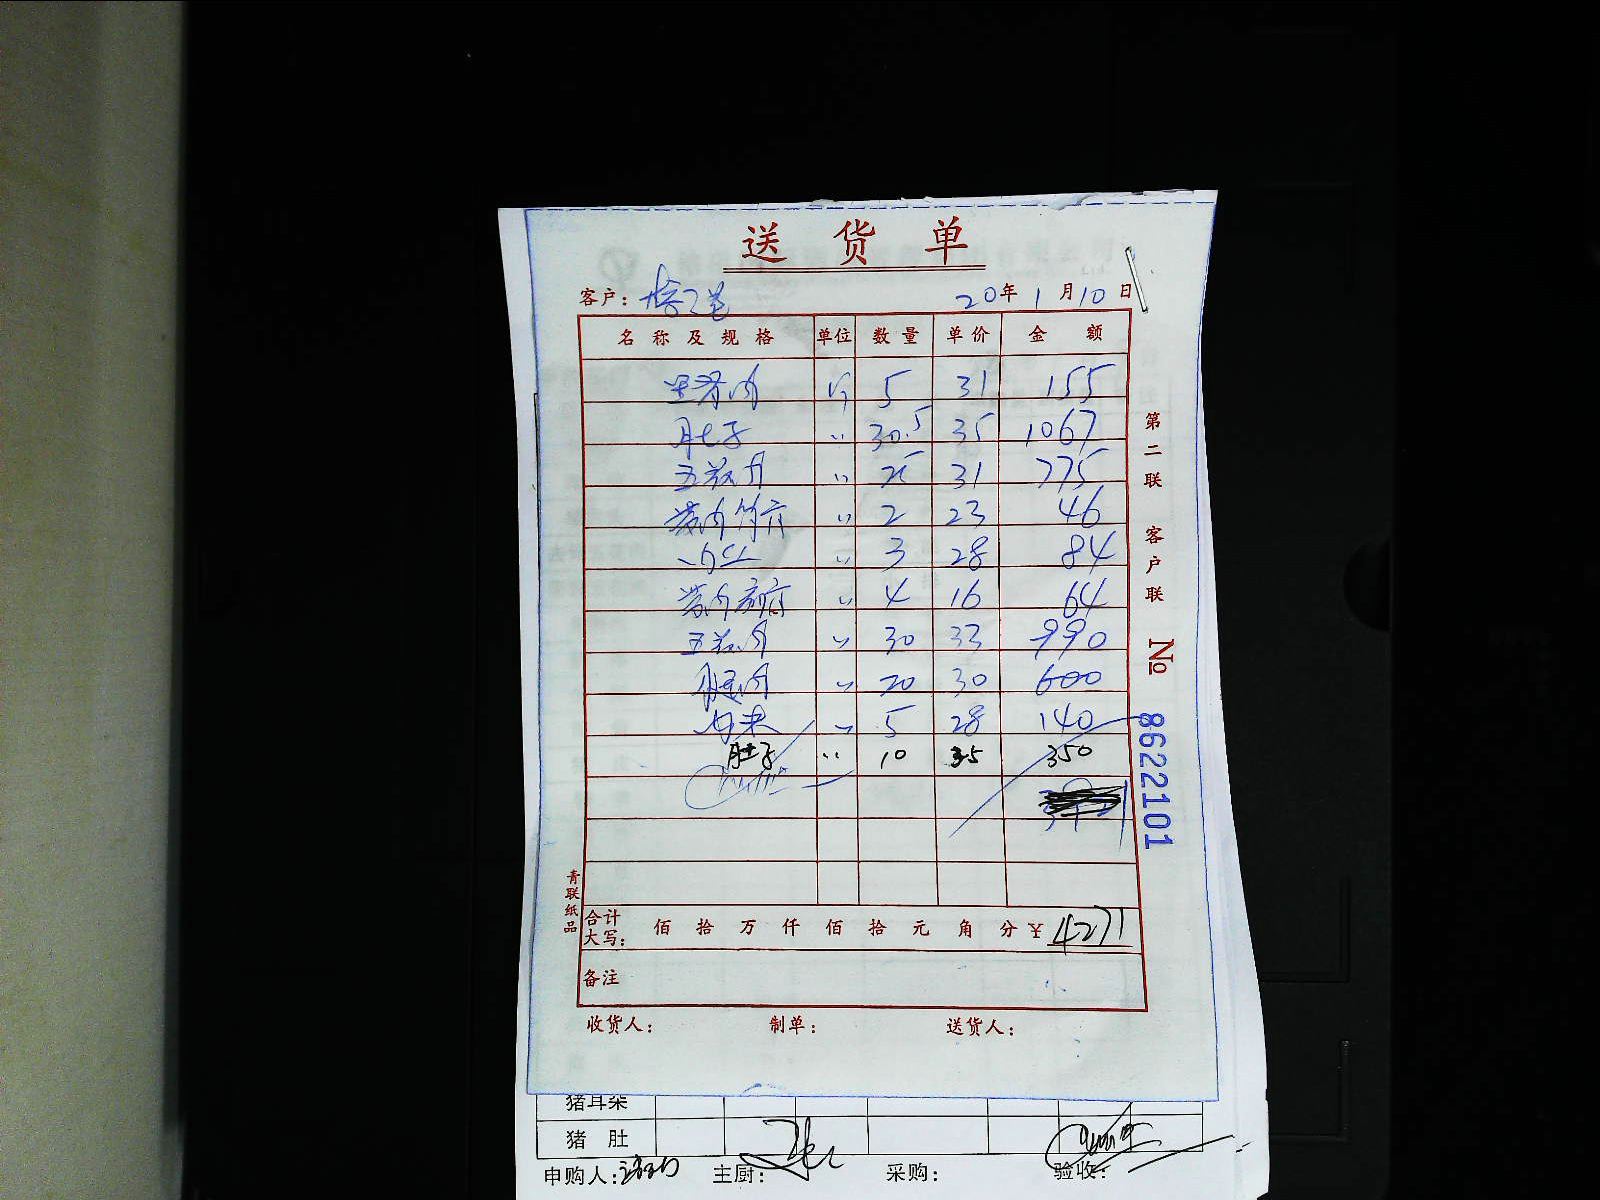 送货单
客户： 20年1月10日
名称及规格 单位 数量 单价 金额
肉 斤 5 31 155
肚子 〃 30.5 35 1067
五花肉 〃 25 31 775
带肉筒骨 〃 2 23 46
〃 3 28 84
带肉扇骨 〃 4 16 64
五花肉 〃 30 33 990
腿肉 〃 20 30 600
肉末 〃 5 28 140
肚子 〃 10 35 350
合计大写： 佰 拾 万 仟 佰 拾 元 角 分 ¥4271
备注
收货人： 制单： 送货人：
第二联 客户联
№ 8622101
青联纸品
猪耳朵
猪肚
申购人： 主厨： 采购： 验收：